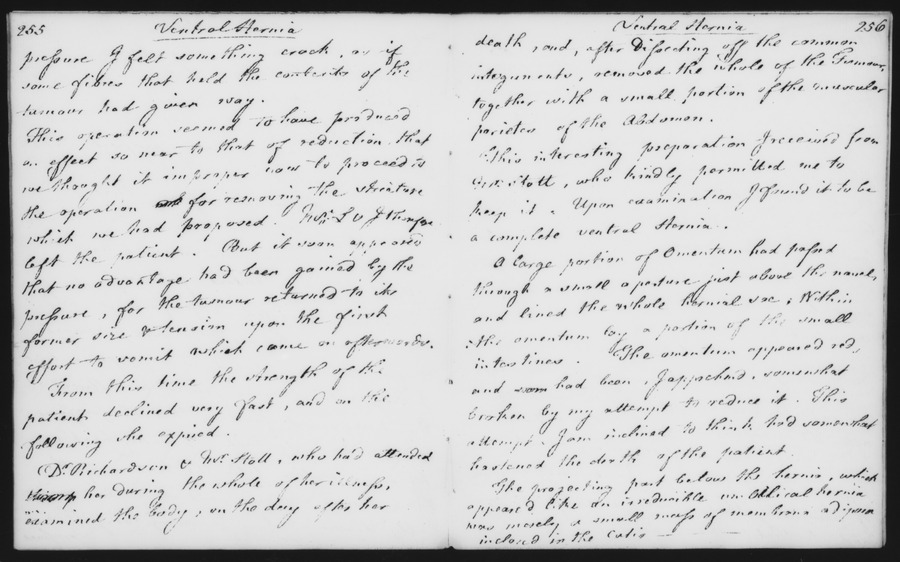 255
Ventral Hernia
pressure I felt something crack, as if
some fibres that held the contents of the
tumour had given way.
This operation seemed to have produced
an effect so near to that of reduction that
we thought it improper now to proceed to
the operation for removing the stricture
which we had proposed. Mr. & I therefore
left the patient. But it soon appeared
that no advantage had been gained by the
pressure, for the tumour returned to its
former size & tension upon the first
effort to vomit which came on afterwards.
From this time the strength of the
patient declined very fast, and on the
following she expired.
Dr. Richardson & Mr. Stott, who had attended
her during the whole of her illness,
examined the body, on the day after her
Ventral Hernia
256
death and, after Dissecting off the common
integuments, removed the whole of the Tumour,
together with a small portion of the muscular
parietes of the Abdomen.
This interesting preparation I received from
Stott, who kindly permitted me to
keep it. Upon examination I found it to be
a complete ventral Hernia.
A large portion of Omentum had passed
through a small aperture just above the navel,
and lined the whole hernial sac; Within
the omentum lay a portion of the small
intestines. The omentum appeared red,
and had been, I apprehend, somewhat
broken by my attempt to reduce it. This
attempt I am inclined to think had somewhat
hastened the death of the patient.
The projecting part below the hernia, which
appeared like an irreducible umbilical hernia
was merely a small mass of membrana adiposa
inclosed in the cutis